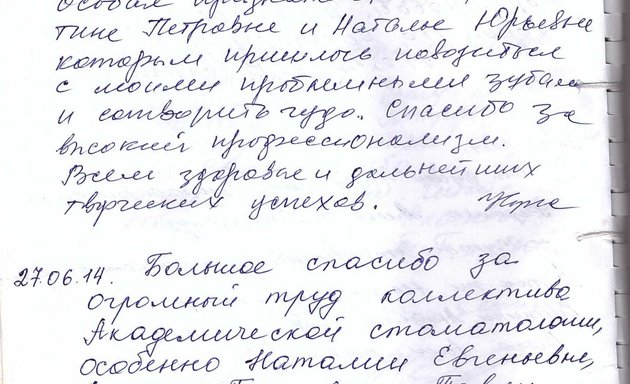 Особая
тине Петровне и Наталье Юрьевне
которым пришлось повозиться
с моими проблемными зубами
и сотворить чудо. Спасибо за
высокий профессионализм.
Всем здоровья и дальнейших
творческих успехов.
27.06.14. Большое спасибо за
огромный труд коллектива
Академической стоматологии,
особенно Наталии Евгеньевне,